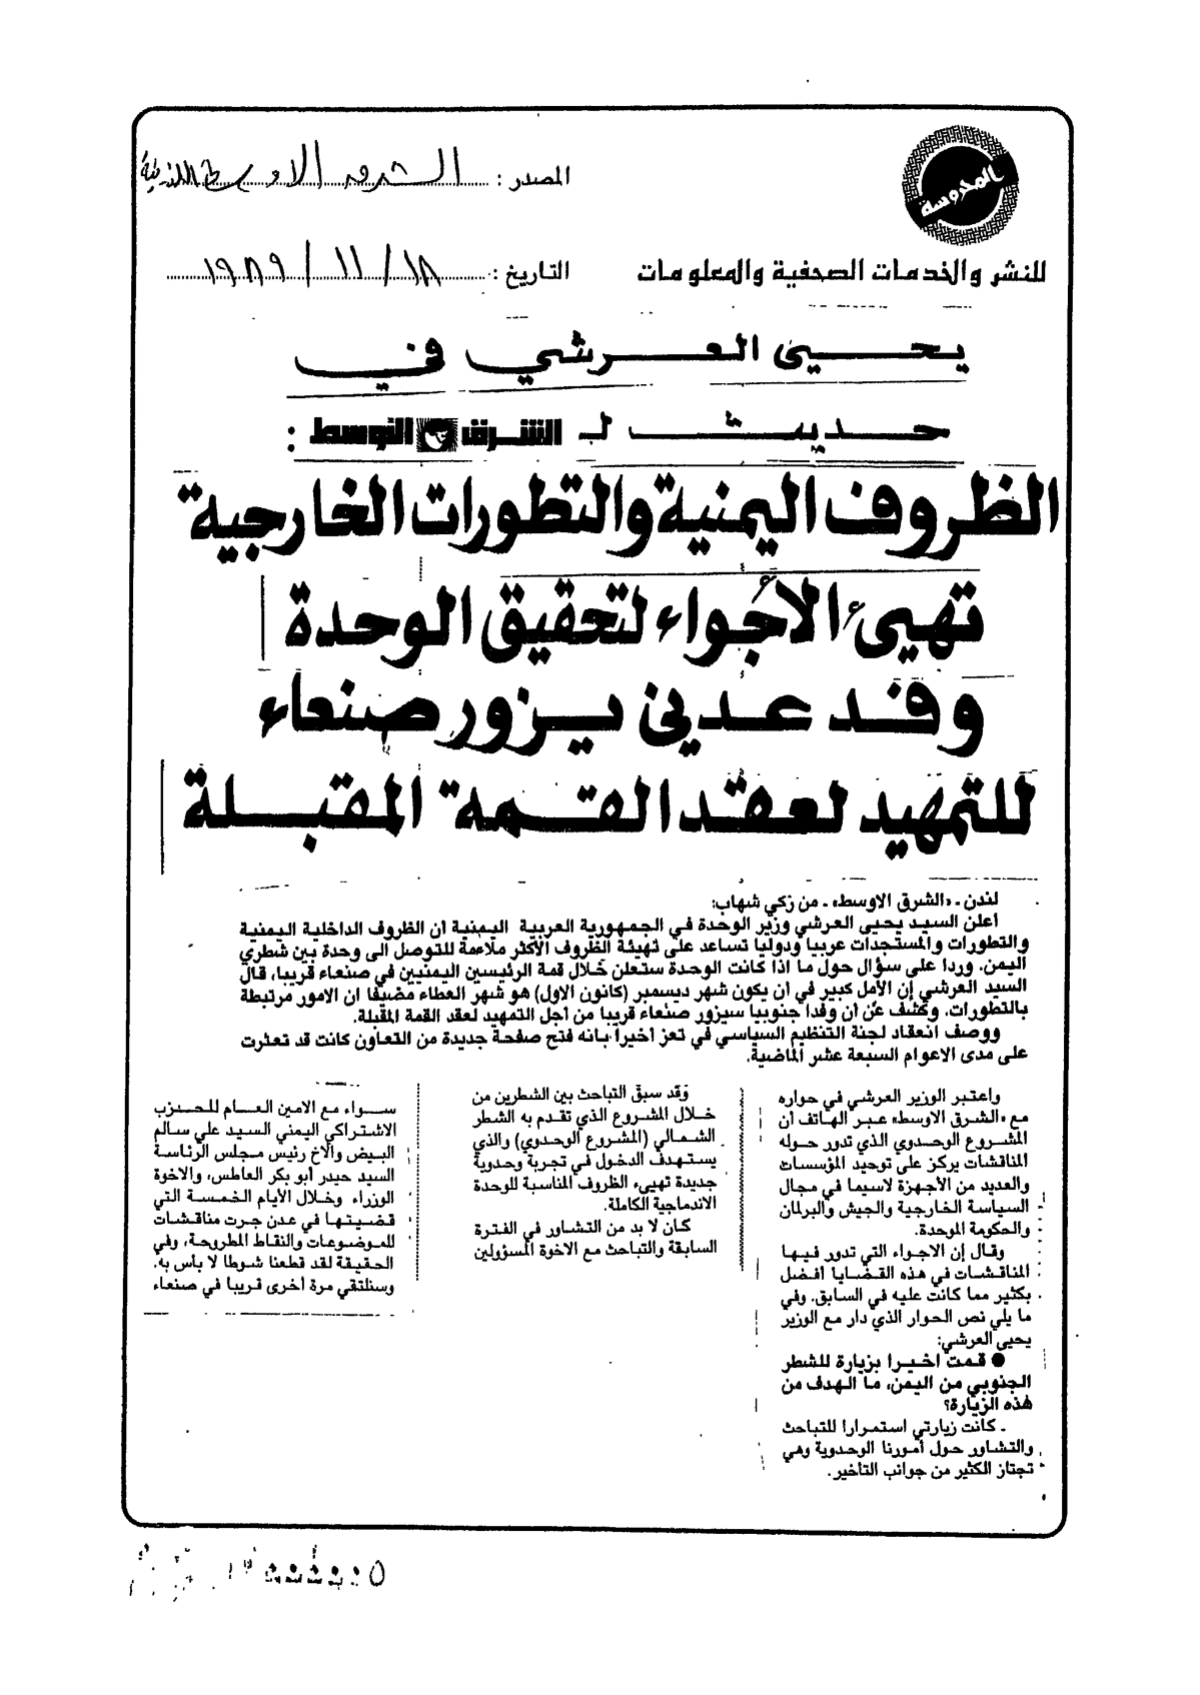 المصدر : الشرق الاوسط اللندنية
المحروسة
للنشر والخدمات الصحفية والمعلومات
التاريخ : ١٨ / ١١ / ١٩٨٩
يحيى العرشي في
حديث لـ الشرق الاوسط :
الظروف اليمنية والتطورات الخارجية
تهيئ الأجواء لتحقيق الوحدة
وفد عدني يزور صنعاء
للتمهيد لعقد القمة المقبلة
لندن ـ «الشرق الاوسط» ـ من زكي شهاب:
أعلن السيد يحيى العرشي وزير الوحدة في الجمهورية العربية اليمنية ان الظروف الداخلية اليمنية
والتطورات والمستجدات عربيا ودوليا تساعد على تهيئة الظروف الأكثر ملاءمة للتوصل الى وحدة بين شطري
اليمن. وردا على سؤال حول ما اذا كانت الوحدة ستعلن خلال قمة الرئيسين اليمنيين في صنعاء قريبا، قال
السيد العرشي إن الأمل كبير في ان يكون شهر ديسمبر (كانون الاول) هو شهر العطاء مضيفا ان الامور مرتبطة
بالتطورات. وكشف عن ان وفدا جنوبيا سيزور صنعاء قريبا من أجل التمهيد لعقد القمة المقبلة.
ووصف انعقاد لجنة التنظيم السياسي في تعز أخيرا بانه فتح صفحة جديدة من التعاون كانت قد تعثرت
على مدى الاعوام السبعة عشر الماضية.
واعتبر الوزير العرشي في حواره
مع «الشرق الاوسط» عبر الهاتف أن
المشروع الوحدوي الذي تدور حوله
المناقشات يركز على توحيد المؤسسات
والعديد من الأجهزة لاسيما في مجال
السياسة الخارجية والجيش والبرلمان
والحكومة الموحدة.
وقال إن الاجواء التي تدور فيها
المناقشات في هذه القضايا افضل
بكثير مما كانت عليه في السابق. وفي
ما يلي نص الحوار الذي دار مع الوزير
يحيى العرشي:
● قمت اخيرا بزيارة للشطر
الجنوبي من اليمن، ما الهدف من
هذه الزيارة؟
ـ كانت زيارتي استمرارا للتباحث
والتشاور حول أمورنا الوحدوية وهي
تجتاز الكثير من جوانب التأخير.
وقد سبق التباحث بين الشطرين من
خلال المشروع الذي تقدم به الشطر
الشمالي (المشروع الوحدوي) والذي
يستهدف الدخول في تجربة وحدوية
جديدة تهيىء الظروف المناسبة للوحدة
الاندماجية الكاملة.
كان لا بد من التشاور في الفترة
السابقة والتباحث مع الاخوة المسؤولين
سواء مع الامين العام للحزب
الاشتراكي اليمني السيد علي سالم
البيض والاخ رئيس مجلس الرئاسة
السيد حيدر أبو بكر العاطس، والاخوة
الوزراء وخلال الأيام الخمسة التي
قضيتها في عدن جرت مناقشات
للموضوعات والنقاط المطروحة، وفي
الحقيقة لقد قطعنا شوطا لا بأس به.
وسنلتقي مرة أخرى قريبا في صنعاء